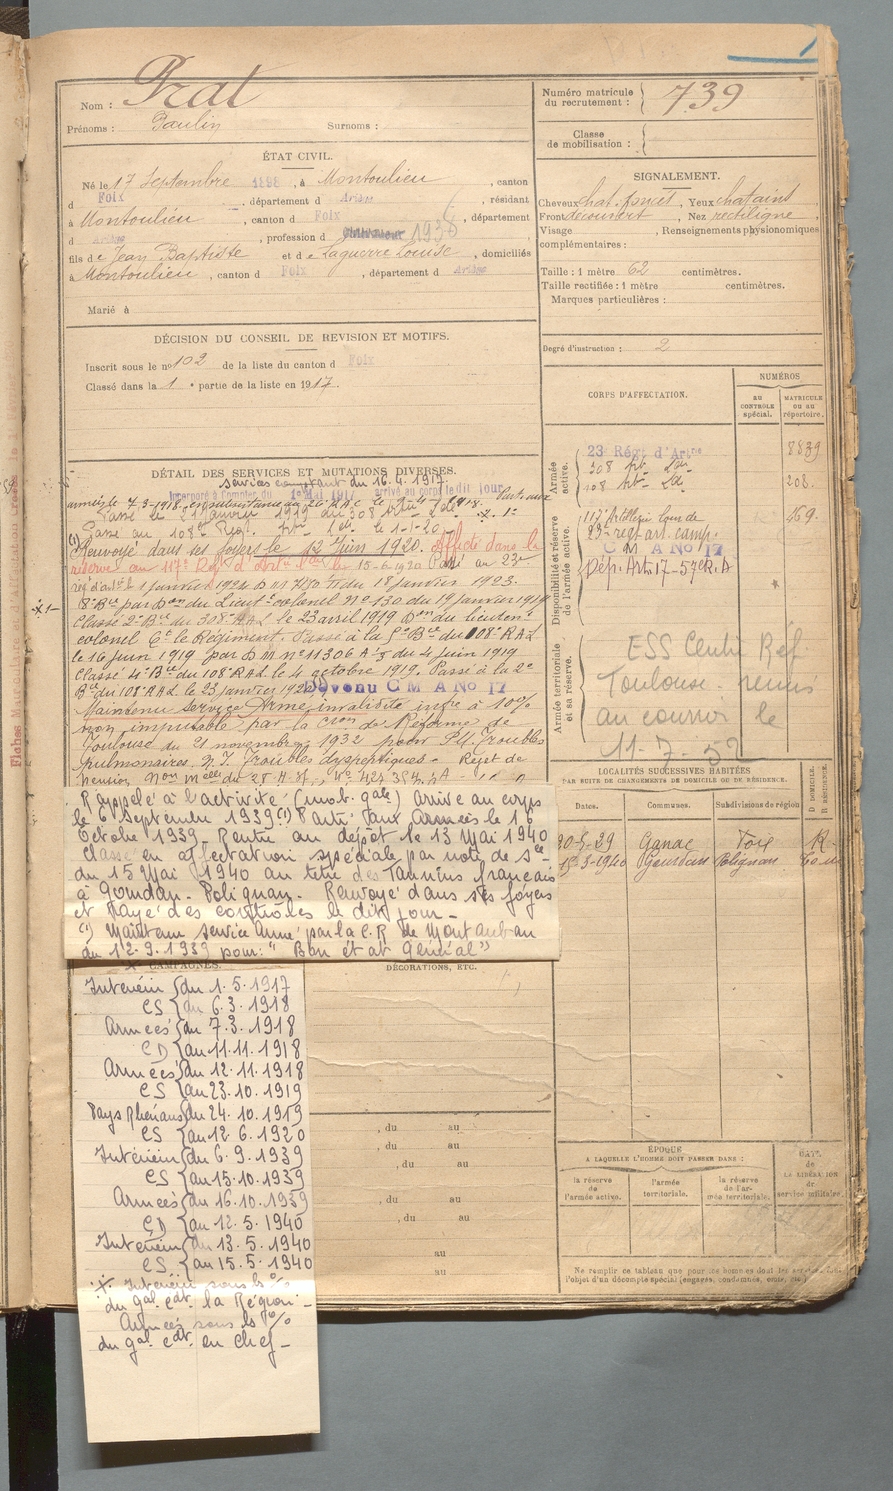 Nom : Prat
Prénoms : Paulin Surnoms :
Numéro matricule du recrutement : 739
Classe de mobilisation :
ÉTAT CIVIL.
Né le 17 Septembre 1898, à Montoulieu, canton
d Foix, département d Ariège, résidant
à Montoulieu, canton d Foix, département
d Ariège, profession d Cultivateur 1936
fils de Jean Baptiste et de Laguerre Louise, domiciliés
à Montoulieu, canton d Foix, département d Ariège
Marié à
SIGNALEMENT.
Cheveux chat. foncé, Yeux chatains
Front découvert, Nez rectiligne
Visage , Renseignements physionomiques
complémentaires :
Taille : 1 mètre 62 centimètres.
Taille rectifiée : 1 mètre centimètres.
Marques particulières :
Degré d'instruction : 2
DÉCISION DU CONSEIL DE REVISION ET MOTIFS.
Inscrit sous le n° 102 de la liste du canton d Foix
Classé dans la 1e partie de la liste en 1917.
CORPS D'AFFECTATION.
NUMÉROS
AU CONTROLE SPÉCIAL.
MATRICULE OU AU RÉPERTOIRE.
Armée active.
23e Régt d'Artrie 8839
308 208.
108
Disponibilité et réserve de l'armée active.
117 Artillerie lourde 569.
23e regt art. camp.
C M A No 17
Dép. Art. 17-57e R.A
Armée territoriale et sa réserve.
ESS Centre Réf
Toulouse
au courrier le
11-7-52
DÉTAIL DES SERVICES ET MUTATIONS DIVERSES.
services comptant du 16.4.1917.
Incorporé à compter du 1er Mai 1917 arrivé au corps le dit jour
armées le 7-3-1918.
Passé le 21 Janvier 1919 au 308
Passé au 108e Régt le 1-1-20
(1) Renvoyé dans ses foyers le 12 Juin 1920. Affecté dans la
réserve au 117e Rég d'Art le 15-6-1920 Passé au 23e
rég d'art le 1 janvier 1924 du 18 Janvier 1923.
8e Bie par Don du Lieutt colonel No 130 du 19 Janvier 1919
Classé 2e Bie au 308e R.A.L. le 23 avril 1919 Don du lieutent
colonel Ct le Régiment. Passé à la 5e Bie du 108e R A L
le 16 juin 1919 par D M no 11306 du 4 juin 1919
Classé 4e Bie du 108e R A L le 4 octobre 1919. Passé à la 2e
Bie du 108 R A L le 23 janvier 1920 Devenu C M A No 17
Maintenu service Armé invalidité infre à 10%
non imputable par la Cron de Réforme de
Toulouse du 21 novembre 1932 pour Troubles
pulmonaires. Troubles dyspeptiques - Rejet de
pension
Rappelé à l'activité (mob. gale) Arrivé au corps
le 6 Septembre 1939 (1) Parti aux Armées le 16
Octobre 1939. Rentre au dépôt le 13 Mai 1940
Classé en affectation spéciale par note de sce
du 15 Mai 1940 au titre des Tannins français
à Gourdan-Polignan. Renvoyé dans ses foyers
et Rayé des contrôles le dit jour -
(1) Maintenu service Armé par la C.R de Montauban
du 12.9.1939 pour : "Bon état Général"
LOCALITÉS SUCCESSIVES HABITÉES
PAR SUITE DE CHANGEMENTS DE DOMICILE OU DE RÉSIDENCE.
Dates. Communes. Subdivisions de région. D DOMICILE. R RÉSIDENCE.
30-5-29 Ganac Foix R
15-3-1940 Gourdan Polignan
CAMPAGNES.
DÉCORATIONS, ETC.
Intérieur du 1.5.1917
CS au 6.3.1918
Armées du 7.3.1918
CD au 11.11.1918
Armées du 12.11.1918
CS au 23.10.1919
Pays Rhénans du 24.10.1919
CS au 12.6.1920
Intérieur du 6.9.1939
CS au 15.10.1939
Armées du 16.10.1939
CD au 12.5.1940
Intérieur du 13.5.1940
CS au 15.5.1940
Intérieur sous les %
du gal. cdt. la Région -
Armées sous les %
du gal. cdt. en chef -
, du au
, du au
, du au
, du au
, du au
au
au
ÉPOQUE
A LAQUELLE L'HOMME DOIT PASSER DANS :
la réserve de l'armée active. l'armée territoriale. la réserve de l'armée territoriale.
DATE de LA LIBÉRATION du service militaire.
Ne remplir ce tableau que pour les hommes dont les services
l'objet d'un décompte spécial (engagés, condamnés, omis, etc.)